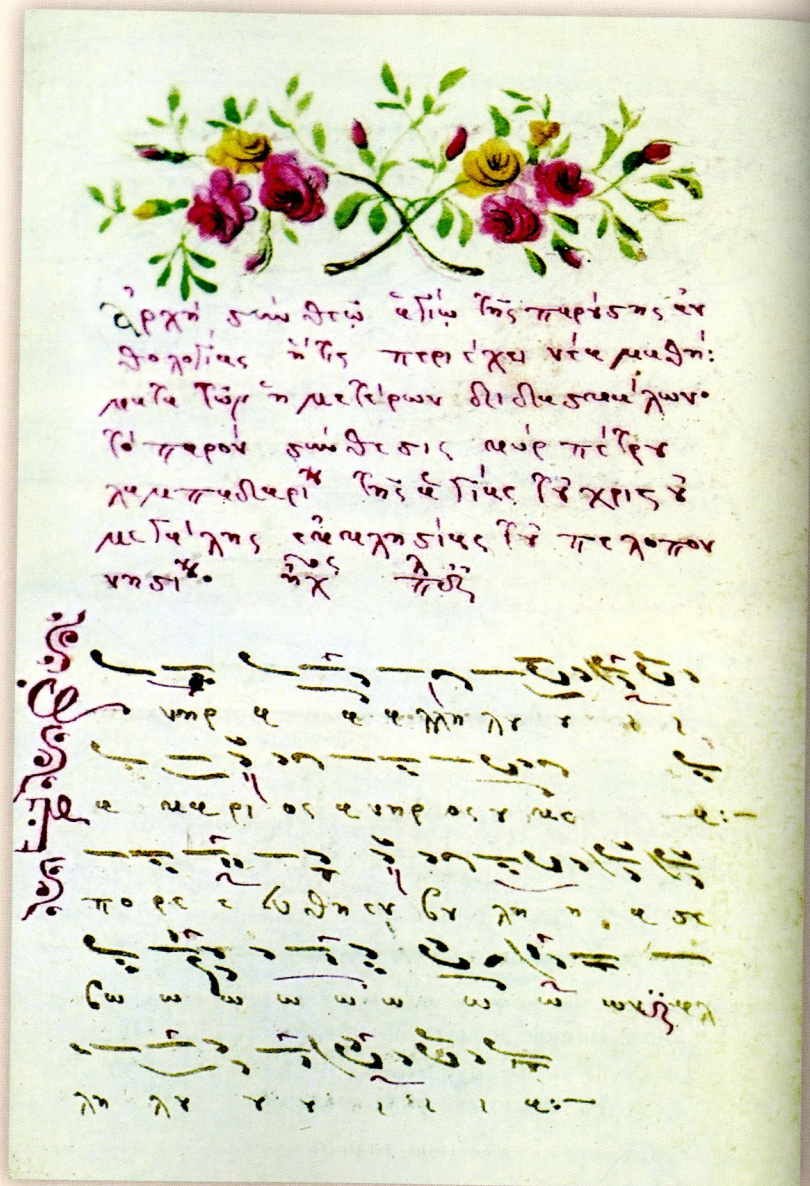 Ἀρχὴ σὺν θεῷ ἁγίῳ τῆς παρούσης ἀν
θολογίας ἥτις περιέχει νέα μαθή:
ματα τῶν ἡμετέρων διδασκάλων·
τὸ παρὸν σύνθεσις κὺρ πέτρου
λαμπαδαρίου τῆς ἁγίας τοῦ χριστοῦ
μεγάλης ἐκκλησίας τοῦ πελοπον
νησίου· ἦχος
νηρ α α αλληλου ου ι ι
α μακαριος ανηρ ος ουκ ε α:–
πορε ε ευθη εν βου λη η α σε
βω ω ω ω ω ω ω ω ων αλ
λη λου ου ου ι ι ι α:–